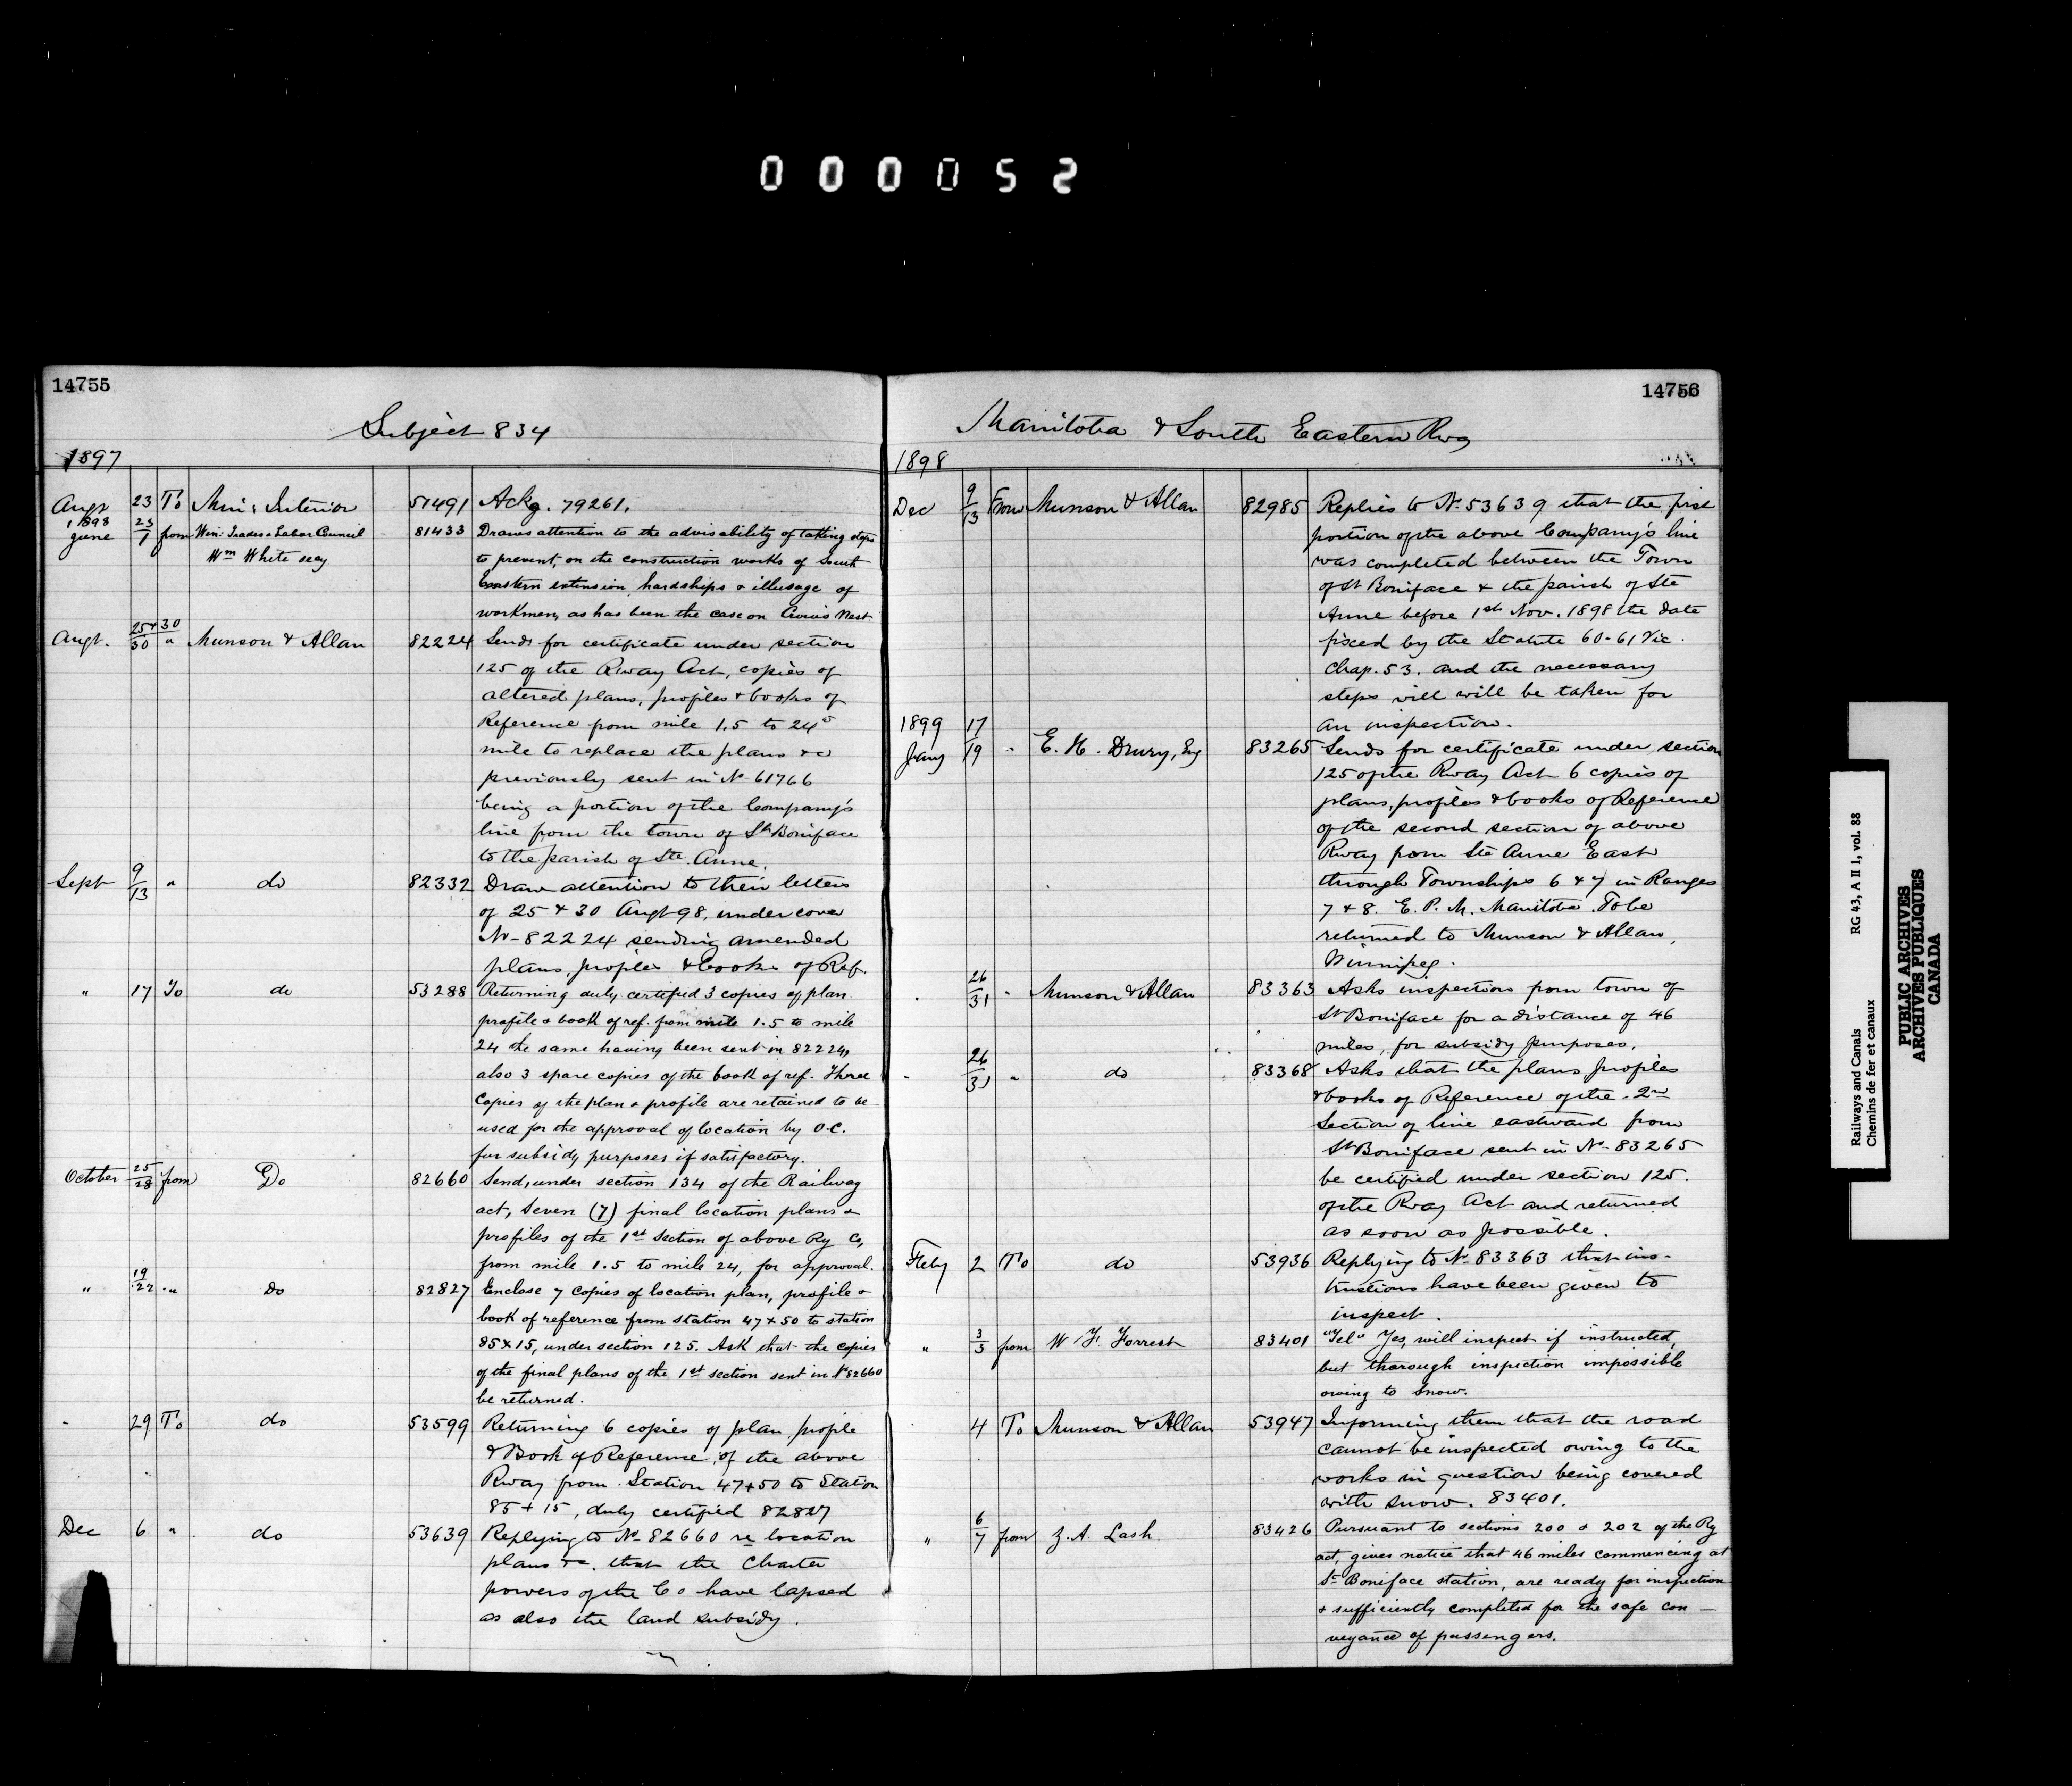 000052
14755
Subject 834
1897
Augt 23 To Min: Interior 51491 Ackg. 79261.
1898
June 23/1 from Win: Trades & Labor Council 81433 Draws attention to the advisability of taking steps
Wm White secy to prevent, on the construction works of South
Eastern extension, hardships & illusage of
workmen, as has been the case on Crow's Nest
Augt. 25+30/30 " Munson & Allan 82224 Sends for certificate under section
125 of the Rway Act, copies of
altered plans, profiles & books of
Reference from mile 1.5 to 24
mile to replace the plans &c
previously sent in No 61766
being a portion of the Company's
line from the town of St Boniface
to the parish of Ste. Anne.
Sept 9/13 " do 82332 Draw attention to their letters
of 25 & 30 Augt 98, under cover
No 82224 sending amended
plans, profiles & books of Ref.
" 17 To do 53288 Returning duly certified 3 copies of plan
profile & book of ref. from mile 1.5 to mile
24 the same having been sent in 82224,
also 3 spare copies of the book of ref. Three
Copies of the plan & profile are retained to be
used for the approval of location by O.C.
for subsidy purposes if satisfactory.
October 25/28 from Do 82660 Send, under section 134 of the Railway
act, Seven (7) final location plans &
profiles of the 1st Section of above Ry Co,
from mile 1.5 to mile 24, for approval.
" 19/22 " Do 82827 Enclose 7 Copies of location plan, profile &
book of reference from station 47+50 to station
85+15, under section 125. Ask that the copies
of the final plans of the 1st section sent in No 82660
be returned.
" 29 To do 53599 Returning 6 copies of plan profile
& Book of Reference, of the above
Rway from Station 47+50 to Station
85+15, duly certified 82827
Dec 6 " do 53639 Replying to No 82660 re location
plans &c. that the Charter
powers of the Co have lapsed
as also the land subsidy.
14756
Manitoba & South Eastern Rwy
1898
Dec 9/13 From Munson & Allan 82985 Replies to No 53639 that the first
portion of the above Company's line
was completed between the Town
of St Boniface & the parish of Ste
Anne before 1st Nov. 1898 the date
fixed by the Statute 60-61 Vic.
Chap. 53. and the necessary
steps will will be taken for
an inspection.
1899
Jany 17/19 " E. H. Drury, Eng 83265 Sends for certificate under section
125 of the Rway Act 6 copies of
plans, profiles & books of Reference
of the second section of above
Rway from Ste Anne East
through Townships 6 & 7 in Ranges
7 & 8. E. P. M. Manitoba. To be
returned to Munson & Allan,
Winnipeg.
" 26/31 " Munson & Allan 83363 Asks inspection from town of
St Boniface for a distance of 46
miles, for subsidy purposes.
" 26/31 " do 83368 Asks that the plans, profiles
& books of Reference of the 2nd
Section of line eastward from
St Boniface sent in No 83265
be certified under section 125.
of the Rway Act and returned
as soon as possible.
Feby 2 To do 53936 Replying to No 83363 that ins-
tructions have been given to
inspect.
" 3/3 from W. F. Forrest 83401 "Tel" Yes, will inspect if instructed,
but thorough inspection impossible
owing to snow.
4 To Munson & Allan 53947 Informing them that the road
cannot be inspected owing to the
works in question being covered
with snow. 83401.
" 6/7 from Z. A. Lash 83426 Pursuant to sections 200 & 202 of the Ry
act, gives notice that 46 miles commencing at
St Boniface station, are ready for inspection
& sufficiently completed for the safe con-
veyance of passengers.
Railways and Canals RG 43, A II 1, vol. 88
Chemins de fer et canaux
PUBLIC ARCHIVES
ARCHIVES PUBLIQUES
CANADA